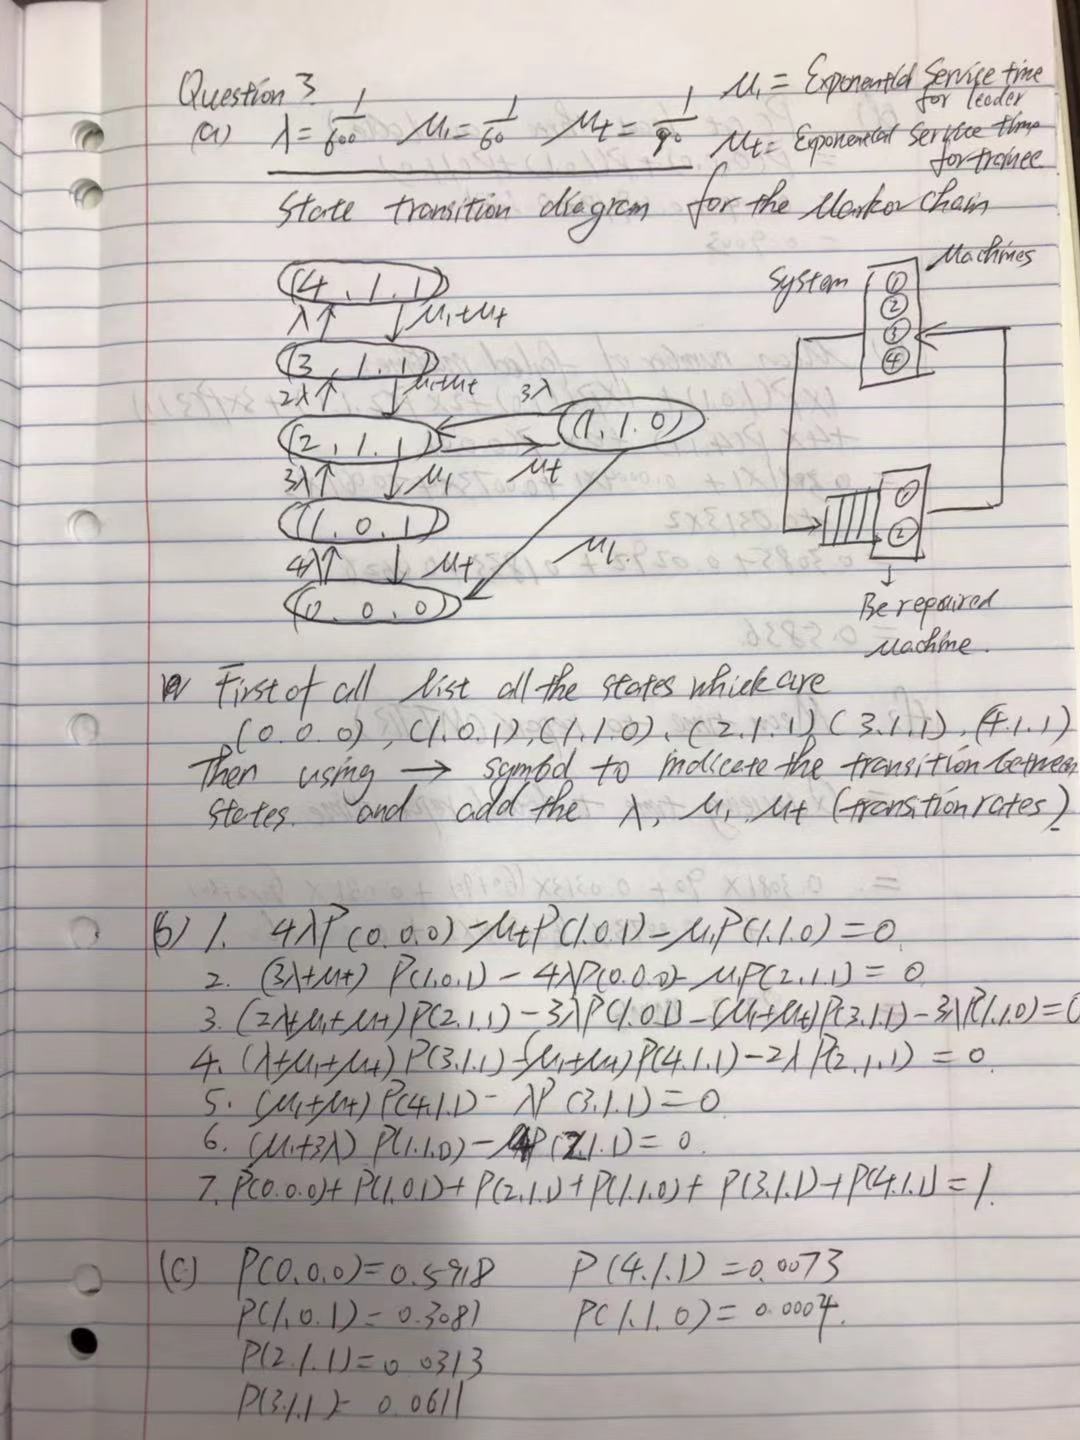 Question 3
(a) λ = 1/600 μ₁ = 1/60 μt = 1/90
μ₁ = Exponential Service time for leader
μt = Exponential Service time for trainee
State transition diagram for the Markov chain
(4, 1, 1)
λ↑ ↓ μ₁+μt
(3, 1, 1)
2λ↑ ↓ μ₁+μt
(2, 1, 1) 3λ (1, 1, 0)
μt
3λ↑ ↓ μ₁
(1, 0, 1)
4λ↑ ↓ μt μ₁
(0, 0, 0)
System Machines
①
②
③
④
①
②
Be repaired
Machine.
First of all list all the states which are
(0.0.0), (1.0.1), (1.1.0), (2.1.1) (3.1.1), (4.1.1)
Then using → symbol to indicate the transition between
states. and add the λ, μ₁, μt (transition rates).
(b) 1. 4λP(0.0.0) - μtP(1.0.1) - μ₁P(1.1.0) = 0
2. (3λ+μt) P(1.0.1) - 4λP(0.0.0) - μ₁P(2.1.1) = 0
3. (2λ+μ₁+μt)P(2.1.1) - 3λP(1.0.1) - (μ₁+μt)P(3.1.1) - 3λP(1.1.0) = 0
4. (λ+μ₁+μt) P(3.1.1) - (μ₁+μt)P(4.1.1) - 2λP(2.1.1) = 0
5. (μ₁+μt) P(4.1.1) - λP(3.1.1) = 0
6. (μ₁+3λ) P(1.1.0) - P(2.1.1) = 0.
7. P(0.0.0) + P(1.0.1) + P(2.1.1) + P(1.1.0) + P(3.1.1) + P(4.1.1) = 1.
(c) P(0.0.0) = 0.5918 P(4.1.1) = 0.0073
P(1.0.1) = 0.3081 P(1.1.0) = 0.0004.
P(2.1.1) = 0.0313
P(3.1.1) = 0.0611